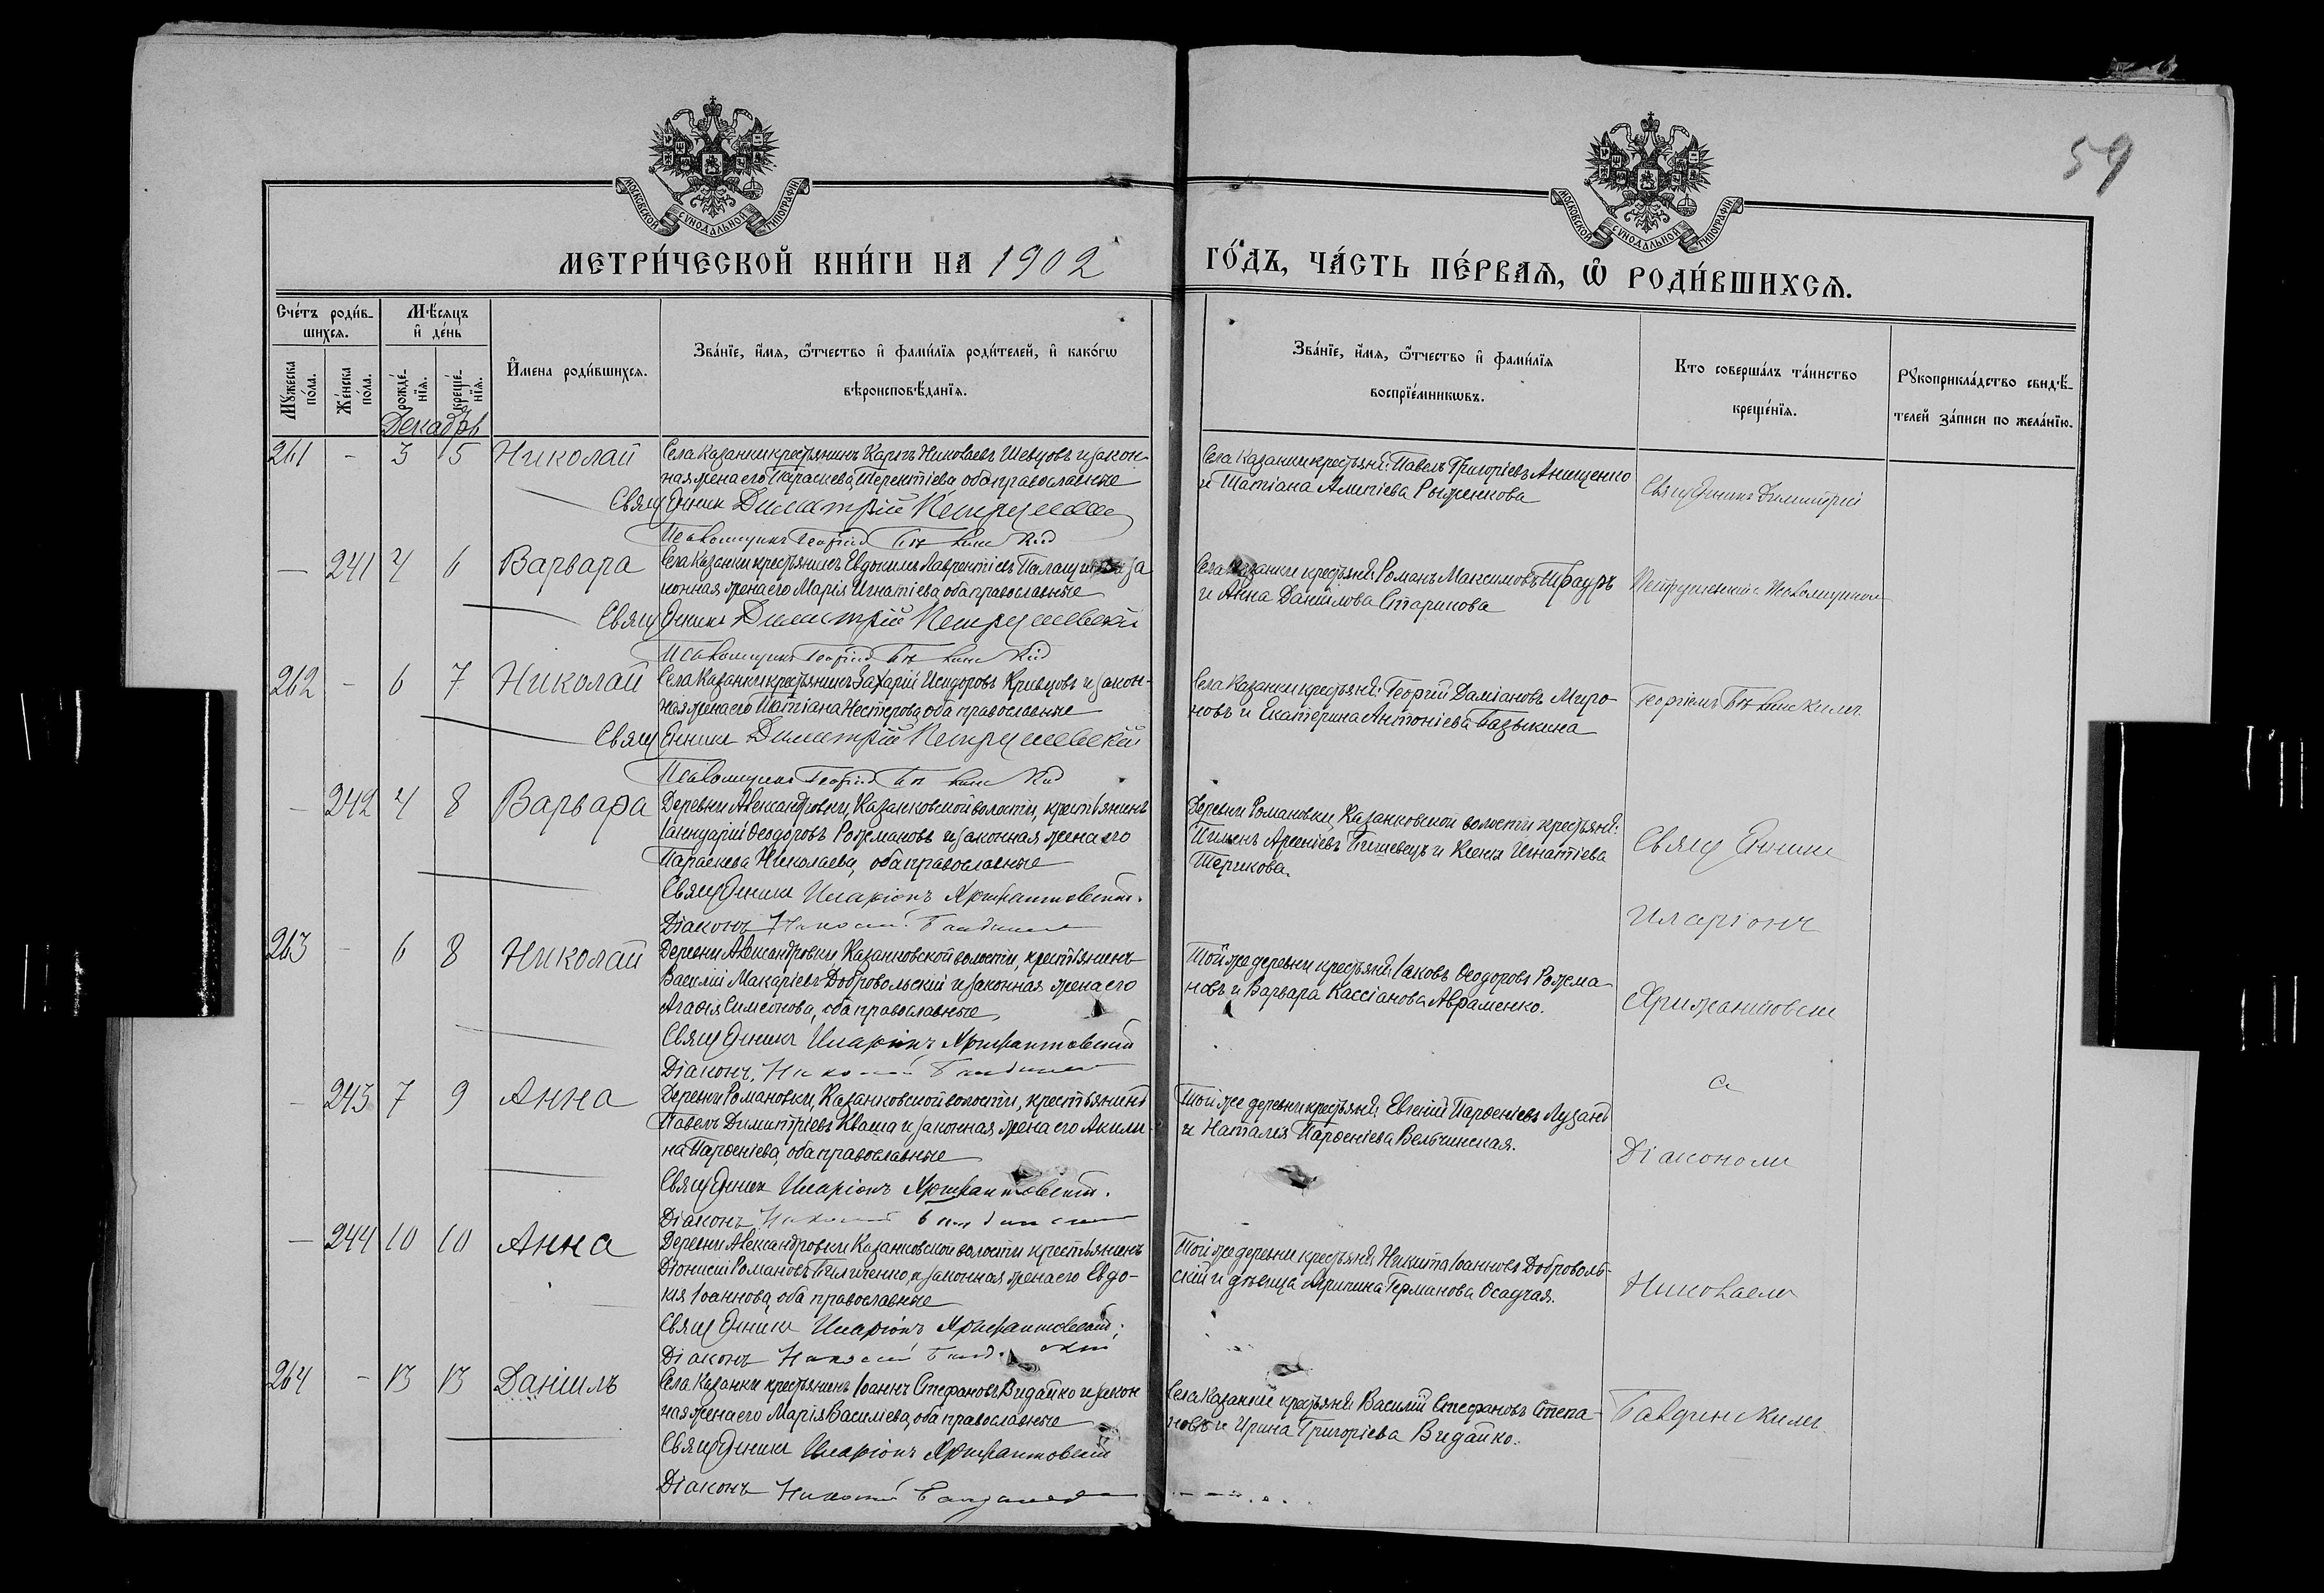 59
МОСКОВСКОЙ СѴНОДАЛЬНОЙ ТИПОГРАФІИ
МОСКОВСКОЙ СѴНОДАЛЬНОЙ ТИПОГРАФІИ
МЕТРИ́ЧЕСКОЙ КНИ́ГИ НА 1902
ГО́ДЪ, ЧА́СТЬ ПЕ́РВАѦ, Ѽ РОДИ́ВШИХСѦ.
Сче́тъ роди́в-
шихсѧ.
Мѣ́сѧцъ
и҆ де́нь
Мꙋ́жеска
по́ла.
Же́нска
по́ла.
рожде́-
нїѧ.
креще́-
нїѧ.
И҆́мена роди́вшихсѧ.
Зва́нїе, и҆́мѧ, ѻ҆́тчество и҆ фами́лїѧ роди́телей, и҆ како́гѡ
вѣроисповѣ́данїѧ.
Зва́нїе, и҆́мѧ, ѻ҆́тчество и҆ фами́лїѧ
воспрїе́мникѡвъ.
Кто соверша́лъ та́инство
креще́нїѧ.
Рꙋкоприкла́дство свидѣ́-
телей за́писи по жела́нїю.
Декабрь
261 - 3 5 Николай
Села Казанки крестьянинъ Карпъ Николаевъ Шевцовъ и закон-
ная жена его Параскева Терентіева оба православные
Священникъ Димитрій Петрушевскій
Псаломщикъ Георгій
Села Казанки крестьяне: Павелъ Григоріевъ Анищенко
и Татіана Алипіева Рыженкова
Священникъ Димитрій
- 241 4 6 Варвара
Села Казанки крестьянинъ Евдокимъ Лаврентіевъ и за
конная жена его Марія Игнатіева, оба православные
Священникъ Димитрій Петрушевскій
Псаломщикъ Георгій
Села Казанки крестьяне Романъ Максимовъ
и Анна Даніилова Старикова
Петрушевскій с Псаломщикомъ
262 - 6 7 Николай
Села Казанки крестьянинъ Захарій Исидоровъ Кривцовъ и закон-
ная жена его Татіана Нестерова, оба православные
Священникъ Димитрій Петрушевскій
Псаломщикъ Георгій
Села Казанки крестьяне: Георгій Даміановъ Миро-
новъ и Екатерина Антоніева Базыкина
Георгіемъ
- 242 4 8 Варвара
Деревни Александровки, Казанковской волости, крестьянинъ
Іаннуарій Ѳеодоровъ Рожмановъ и законная жена его
Параскева Николаева, оба православные
Священникъ Иларіонъ
Діаконъ Николай
Деревни Романовки, Казанковской волости крестьяне:
Пименъ Арсеніевъ и Ксенія Игнатіева
Терикова.
Священникъ
Иларіонъ
263 - 6 8 Николай
Деревни Александровки, Казанковской волости, крестьянинъ
Василій Макаріевъ Добровольскій и законная жена его
Агафія Симеонова, оба православные
Священникъ Иларіонъ
Діаконъ Николай
Той же деревни крестьяне Іаковъ Ѳеодоровъ Рожма-
новъ и Варвара Кассіанова Авраменко.
с
- 243 7 9 Анна
Деревни Романовки, Казанковской волости, крестьянинъ
Павелъ Димитріевъ Кваша и законная жена его Акили-
на Парѳеніева, оба православные
Священникъ Иларіонъ
Діаконъ Николай
Той же деревни крестьяне: Евгеній Парѳеніевъ Лузанъ
и Наталія Парѳеніева Вельчинская.
Діакономъ
- 244 10 10 Анна
Деревни Александровки Казанковской волости крестьянинъ
Діонисій Романовъ и законная жена его Евдо-
кія Іоаннова, оба православные
Священникъ Иларіонъ
Діаконъ Николай
Той же деревни крестьяне Никита Іоанновъ Доброволь-
скій и дѣвица Агрипина Германова Осадчая.
Николаемъ
264 - 13 13 Даніилъ
Села Казанки крестьянинъ Іоаннъ Стефановъ Видайко и закон
ная жена его Марія Василіева, оба православные
Священникъ Иларіонъ
Діаконъ Николай
Села Казанки крестьяне Василій Стефановъ Степа-
новъ и Ирина Григоріева Видайко.